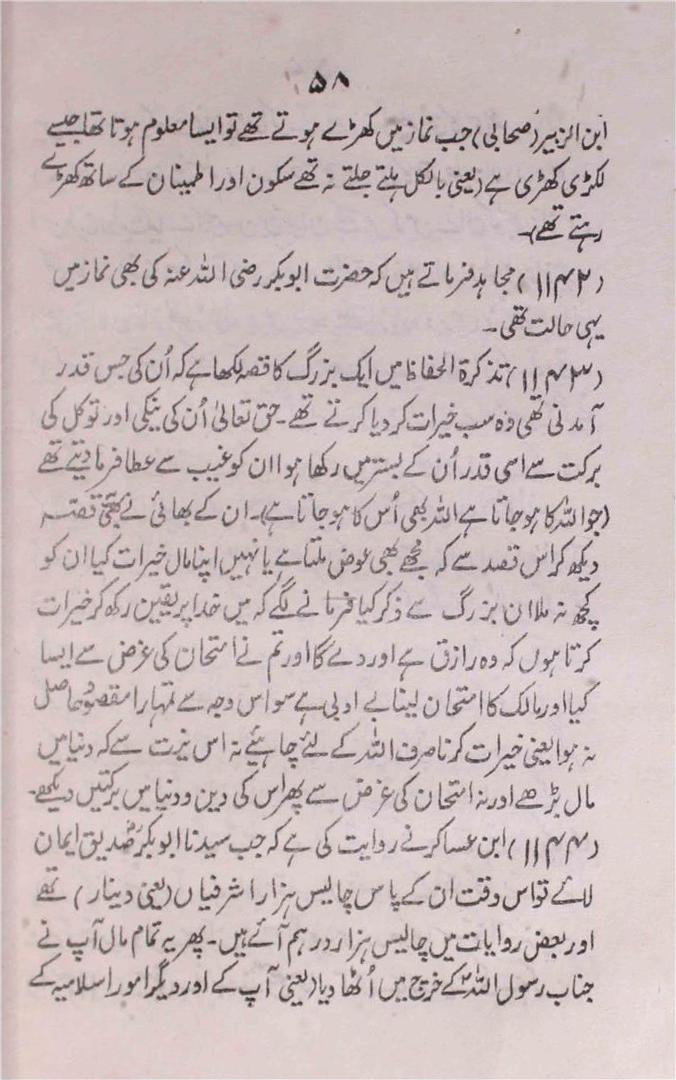 ۵۸
ابن الزبیر (صحابی) جب نماز میں کھڑے ہوتے تھے تو ایسا معلوم ہوتا تھا جیسے
لکڑی کھڑی ہے (یعنی بالکل ہلتے جلتے نہ تھے سکون اور اطمینان کے ساتھ کھڑے
رہتے تھے)۔
(۱۱۴۲) مجاہد فرماتے ہیں کہ حضرت ابوبکر رضی اللہ عنہ کی بھی نماز میں
یہی حالت تھی۔
(۱۱۴۳) تذکرۃ الحفاظ میں ایک بزرگ کا قصہ لکھا ہے کہ اُن کی جس قدر
آمدنی تھی وہ سب خیرات کر دیا کرتے تھے۔ حق تعالیٰ اُن کی نیکی اور توکل کی
برکت سے اسی قدر اُن کے بستر میں رکھا ہوا ان کو غیب سے عطا فرما دیتے تھے
(جو اللہ کا ہو جاتا ہے اللہ بھی اُس کا ہو جاتا ہے)۔ ان کے بھائی نے بھی قصہ
دیکھ کر اس قصد سے کہ مجھے بھی عوض ملتا ہے یا نہیں اپنا مال خیرات کیا ان کو
کچھ نہ ملا ان بزرگ سے ذکر کیا فرمانے لگے کہ میں خدا پر یقین رکھ کر خیرات
کرتا ہوں کہ وہ رازق ہے اور دے گا اور تم نے امتحان کی غرض سے ایسا
کیا اور مالک کا امتحان لینا بے ادبی ہے سو اس وجہ سے تمہارا مقصود حاصل
نہ ہوا یعنی خیرات کرنا صرف اللہ کے لئے چاہئیے نہ اس نیت سے کہ دنیا میں
مال بڑھے اور نہ امتحان کی غرض سے پھر اس کی دین و دنیا میں برکتیں دیکھے۔
(۱۱۴۴) ابن عساکر نے روایت کی ہے کہ جب سیدنا ابوبکرؓ صدیق ایمان
لائے تو اس وقت ان کے پاس چالیس ہزار اشرفیاں (یعنی دینار) تھے
اور بعض روایات میں چالیس ہزار درہم آئے ہیں۔ پھر یہ تمام مال آپ نے
جناب رسول اللہؐ کے خرچ میں اُٹھا دیا (یعنی آپ کے اور دیگر امور اسلامیہ کے